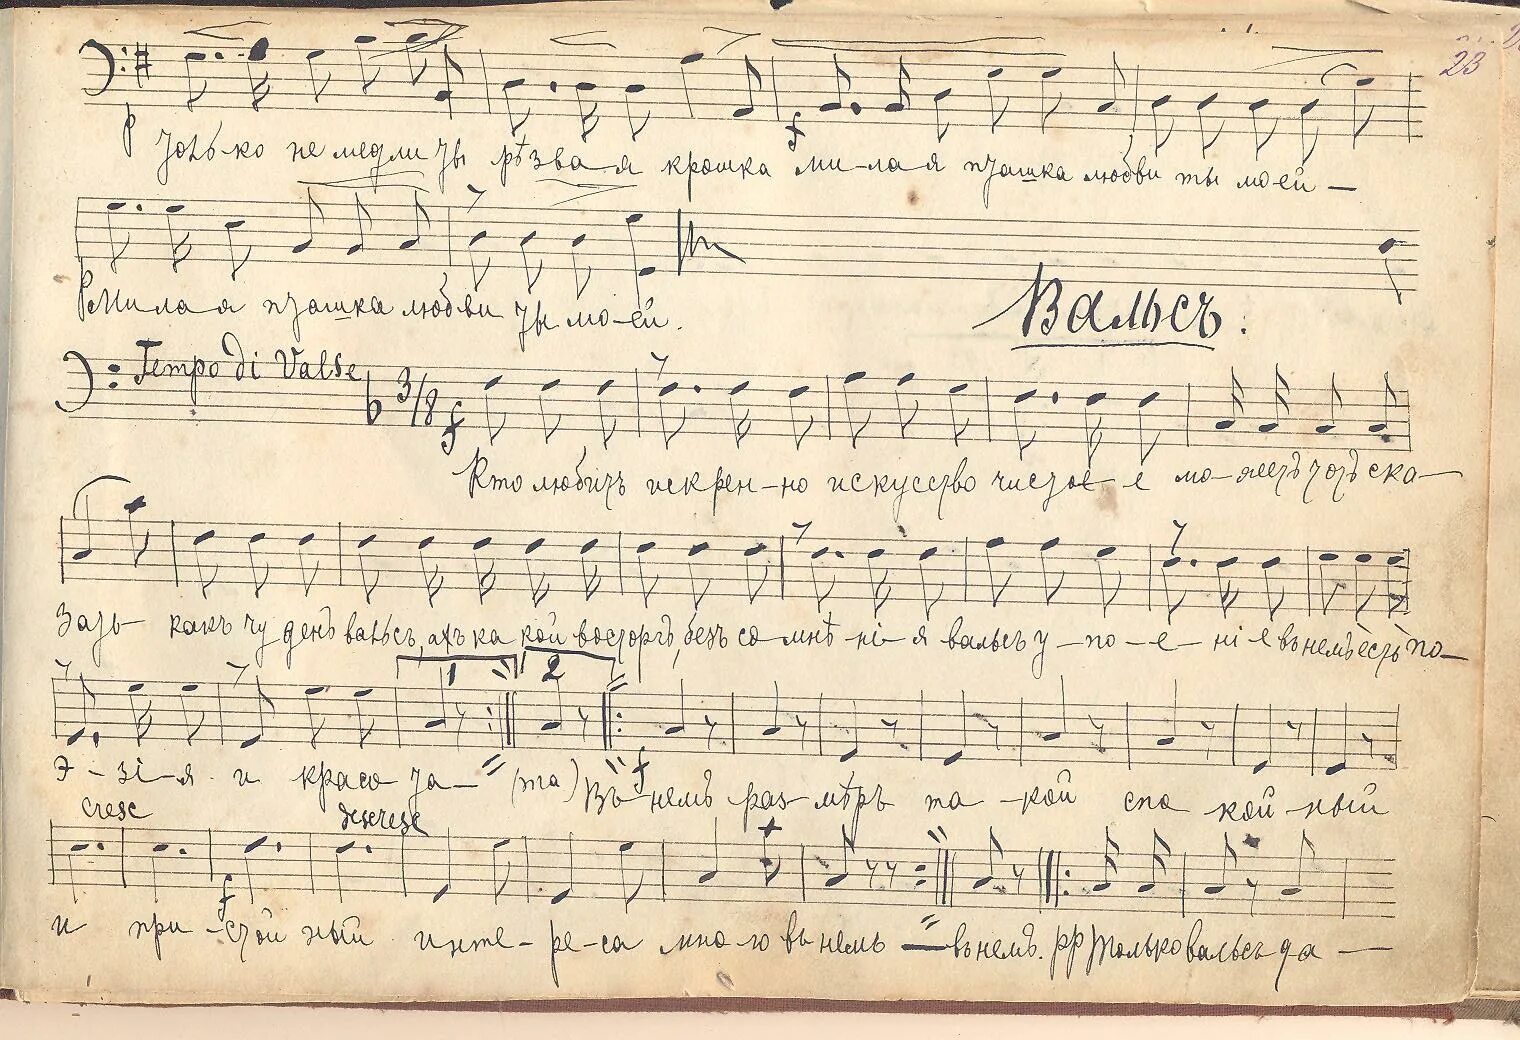 23
p только не медли ты рѣзва-я крошка f ми-ла-я пташка любви ты мо-ей -
p Ми-ла-я пташка любви ты мо-ей.
Вальсъ.
Tempo di Valse 3/8 f
Кто любитъ искрен-но искусство чистое-е мо-жетъ тотъ ска-
зать- какъ чуденъ вальсъ, ахъ какой восторгъ, безъ со-мнѣ-ні-я вальсъ у-по-е-ні-е въ немъ есть по-
1 2
э-зі-я и красо-та- (та) f Въ-немъ раз-мѣръ та-кой спо кой-ный
cresc decresc
и при-f стой ный инте-ре-са много въ немъ - въ немъ. pp только вальсъ да-